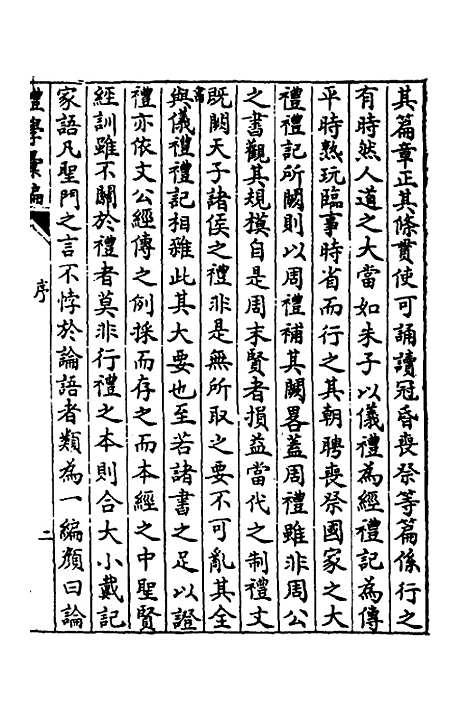 其篇章正其條貫使可誦讀冠昏喪祭等篇係行之
有時然人道之大當如朱子以儀禮為經禮記為傳
平時熟玩臨事時省而行之其朝聘喪祭國家之大
禮禮記所闕則以周禮補其闕畧蓋周禮雖非周公
之書觀其規模自是周末賢者損益當代之制禮文
既闕天子諸侯之禮非是無所取之要不可亂其全
與儀禮禮記相雜此其大要也至若諸書之足以證
禮亦依文公經傳之例採而存之而本經之中聖賢
經訓雖不關於禮者莫非行禮之本則合大小戴記
家語凡聖門之言不悖於論語者類為一編顏曰論
禮學彙編
序
二